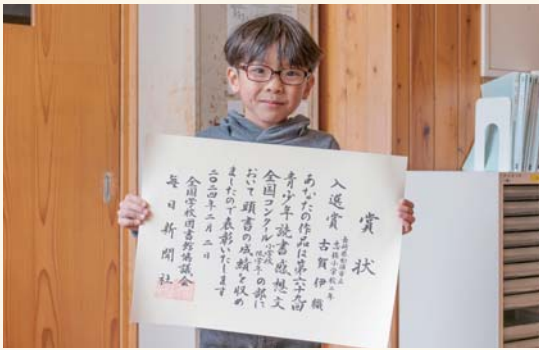 賞状
入選賞
小学校二年
古賀伊織
あなたの作品は第六十九回
青少年読書感想文
全国コンクール小学校低学年の部に
おいて頭書の成績を収め
ましたので表彰いたします
二〇二四年二月二日
全国学校図書館協議会
毎日新聞社